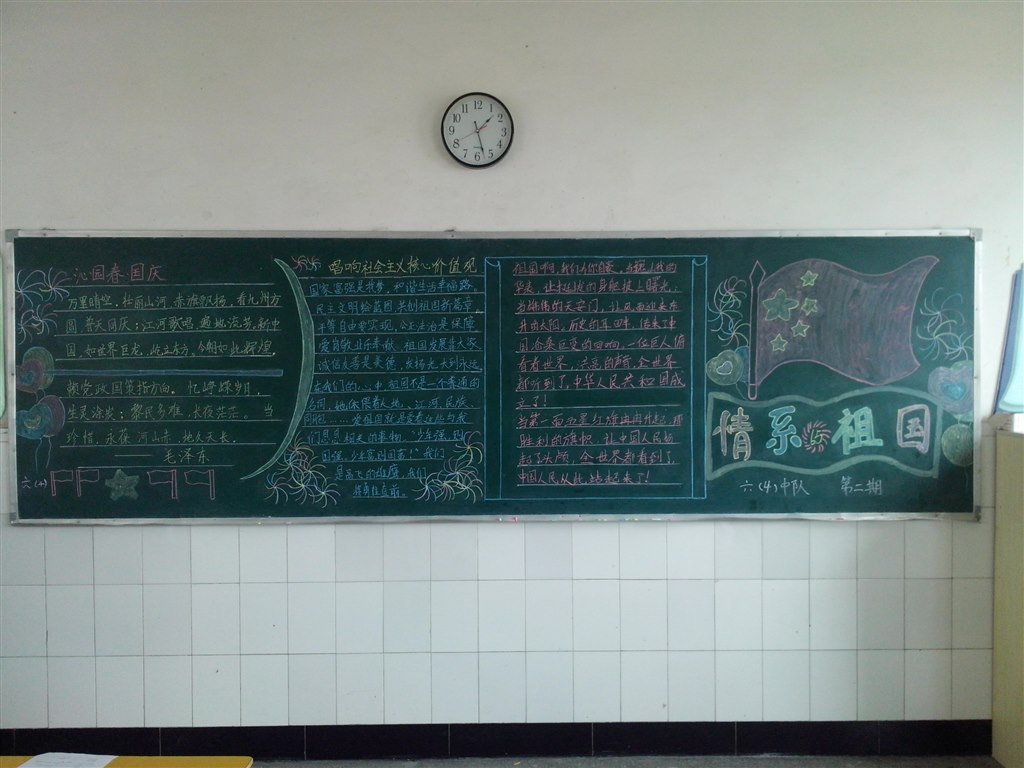 沁园春国庆
万里晴空，壮丽山河，赤旗飘扬，看九州方
圆，普天同庆；江河歌唱，遍地流芳，新中
国，如世界巨龙，屹立东方，今朝如此辉煌，
赖党政国策指方向。忆峥嵘岁月，
生灵涂炭；黎民多难，长夜茫茫。当
珍惜，永葆河山赤，地久天长。
——毛泽东
六(4)
唱响社会主义核心价值观
国家富强是我梦，和谐生活幸福路，
民主文明绘蓝图，共创祖国新
平等自由要实现，公正法治是保障
爱岗敬业作奉献，祖国发展靠大家
诚信友善是美德，发扬光大到永远
在我们的心中祖国不是一个普通的
名词，她保偎着人地，江河，民族，
同胞……爱祖国就是爱着这些与我
们息息相关的事物，“少年强，则
国强，少年富则国富！”我们
是高飞的雄鹰，我们
将勇往直前。
祖国啊，我们为你自豪，当
华表，让挺拔的身躯披上曙光，
当雄伟的天安门，让风雨迎来东
升的太阳，历史的耳畔，传来了中
国沧桑巨变的回响，一位巨人俯
看着世界，洪亮的声音，全世界
都听到了，中华人民共和国成
立了！
当第一面五星红旗冉冉升起，那
胜利的旗帜，让中国人民扬
起了头颅，全世界都看到了，
中国人民从此站起来了！
情系祖国
六(4)中队 第二期
12
1
2
3
4
5
6
7
8
9
10
11